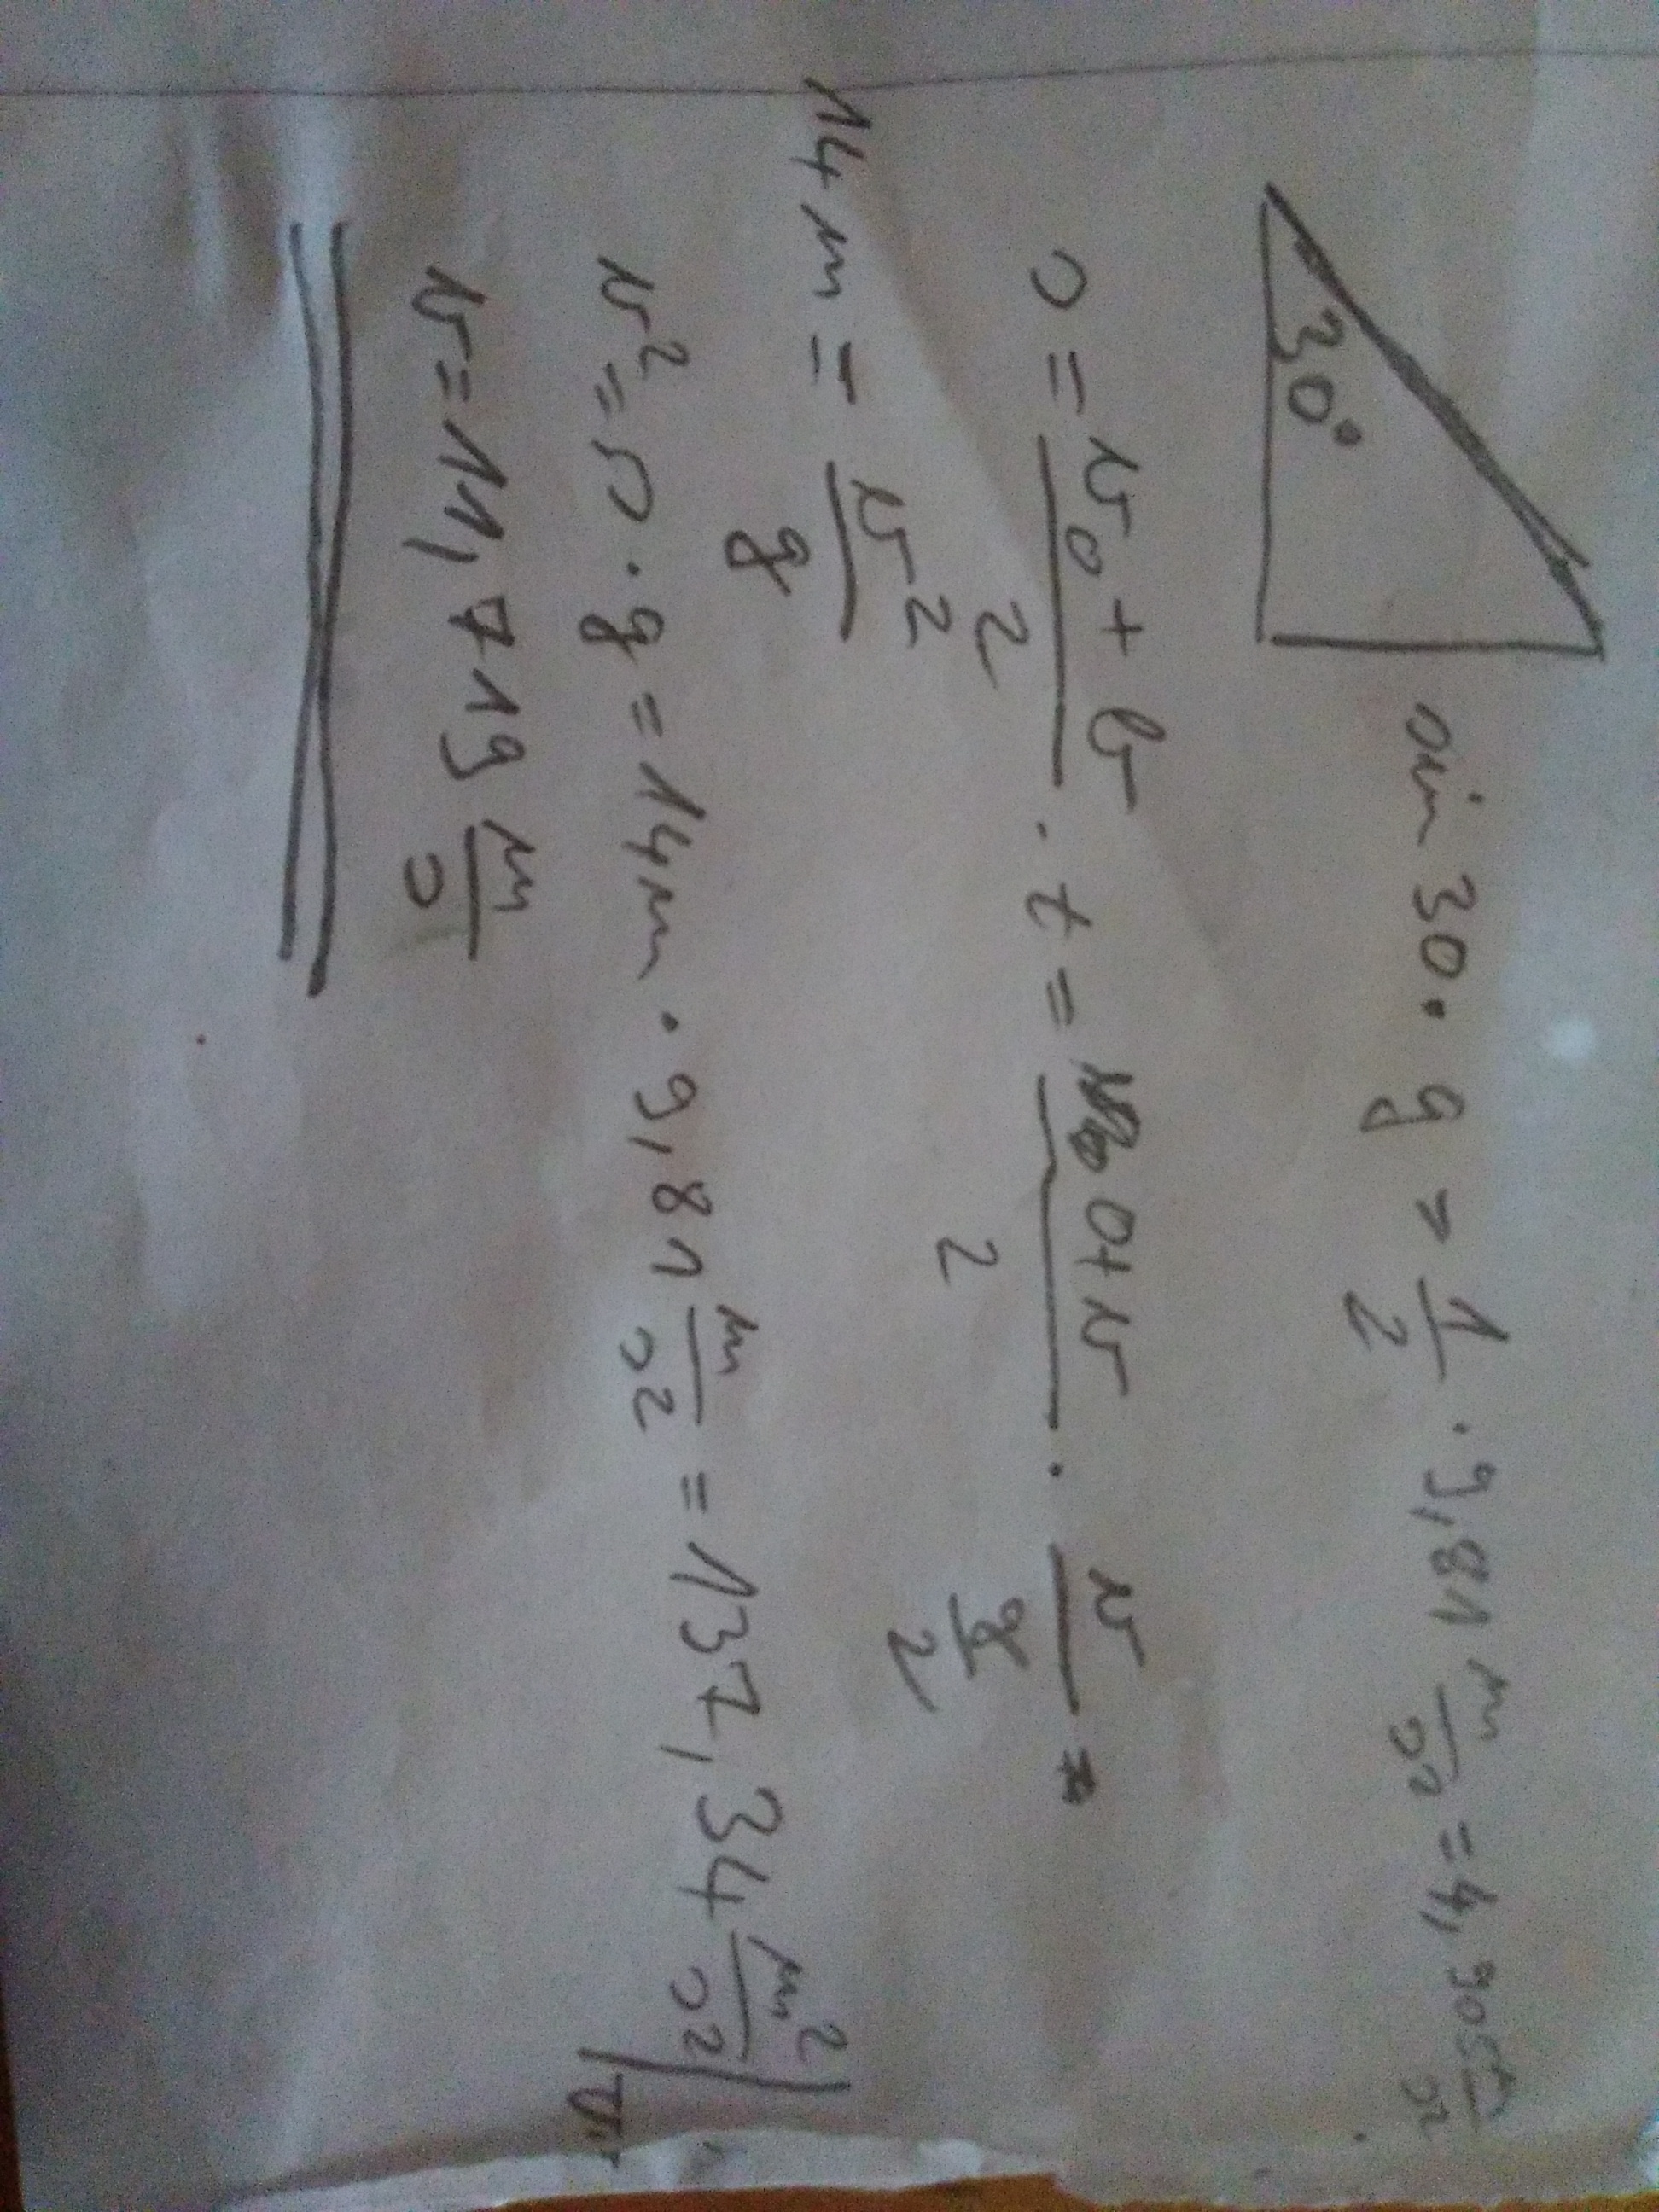 30°
sin 30 · g = 1/2 · 9,81 m/s² = 4,905 m/s²
s = (v₀ + v)/2 · t = (0 + v)/2 · v/(g/2) =
14 m = v²/g
v² = s · g = 14 m · 9,81 m/s² = 137,34 m²/s² |
v = 11,719 m/s